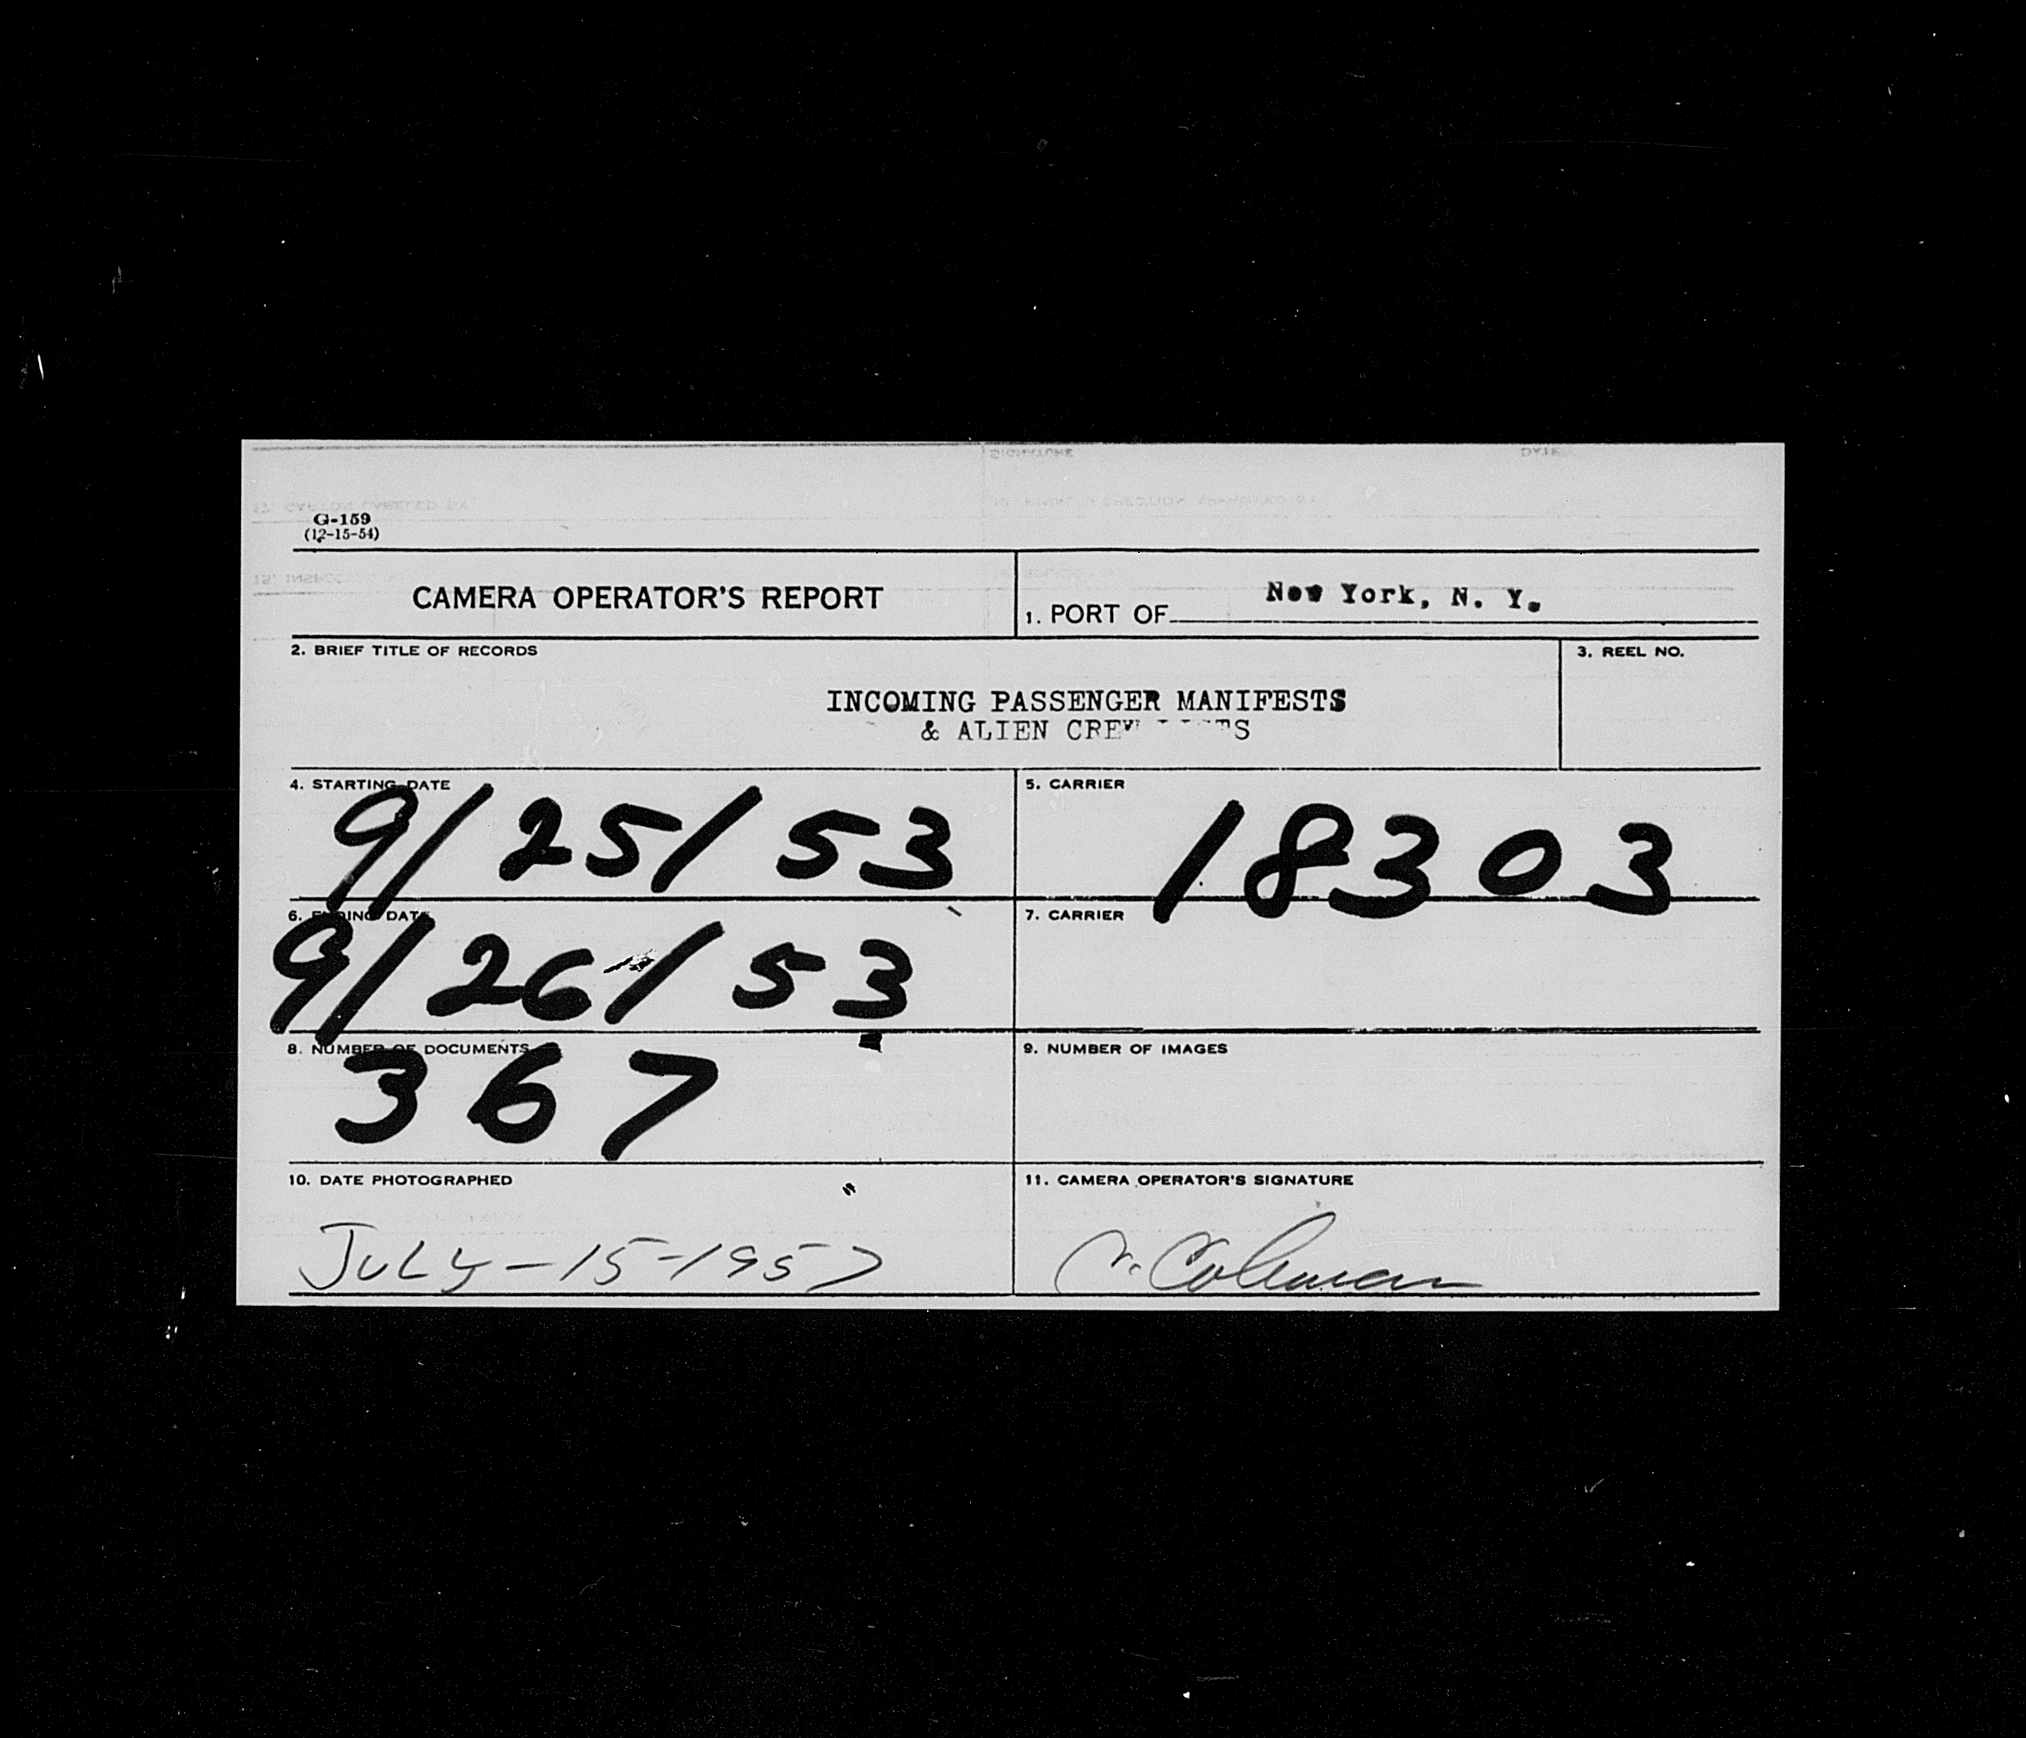 G-159
(12-15-54)
CAMERA OPERATOR'S REPORT
1. PORT OF New York, N. Y.
2. BRIEF TITLE OF RECORDS
3. REEL NO.
INCOMING PASSENGER MANIFESTS
& ALIEN CREW LISTS
4. STARTING DATE
9/25/53
5. CARRIER
18303
6. ENDING DATE
9/26/53
7. CARRIER
8. NUMBER OF DOCUMENTS
367
9. NUMBER OF IMAGES
10. DATE PHOTOGRAPHED
JULY-15-1957
11. CAMERA OPERATOR'S SIGNATURE
Coleman